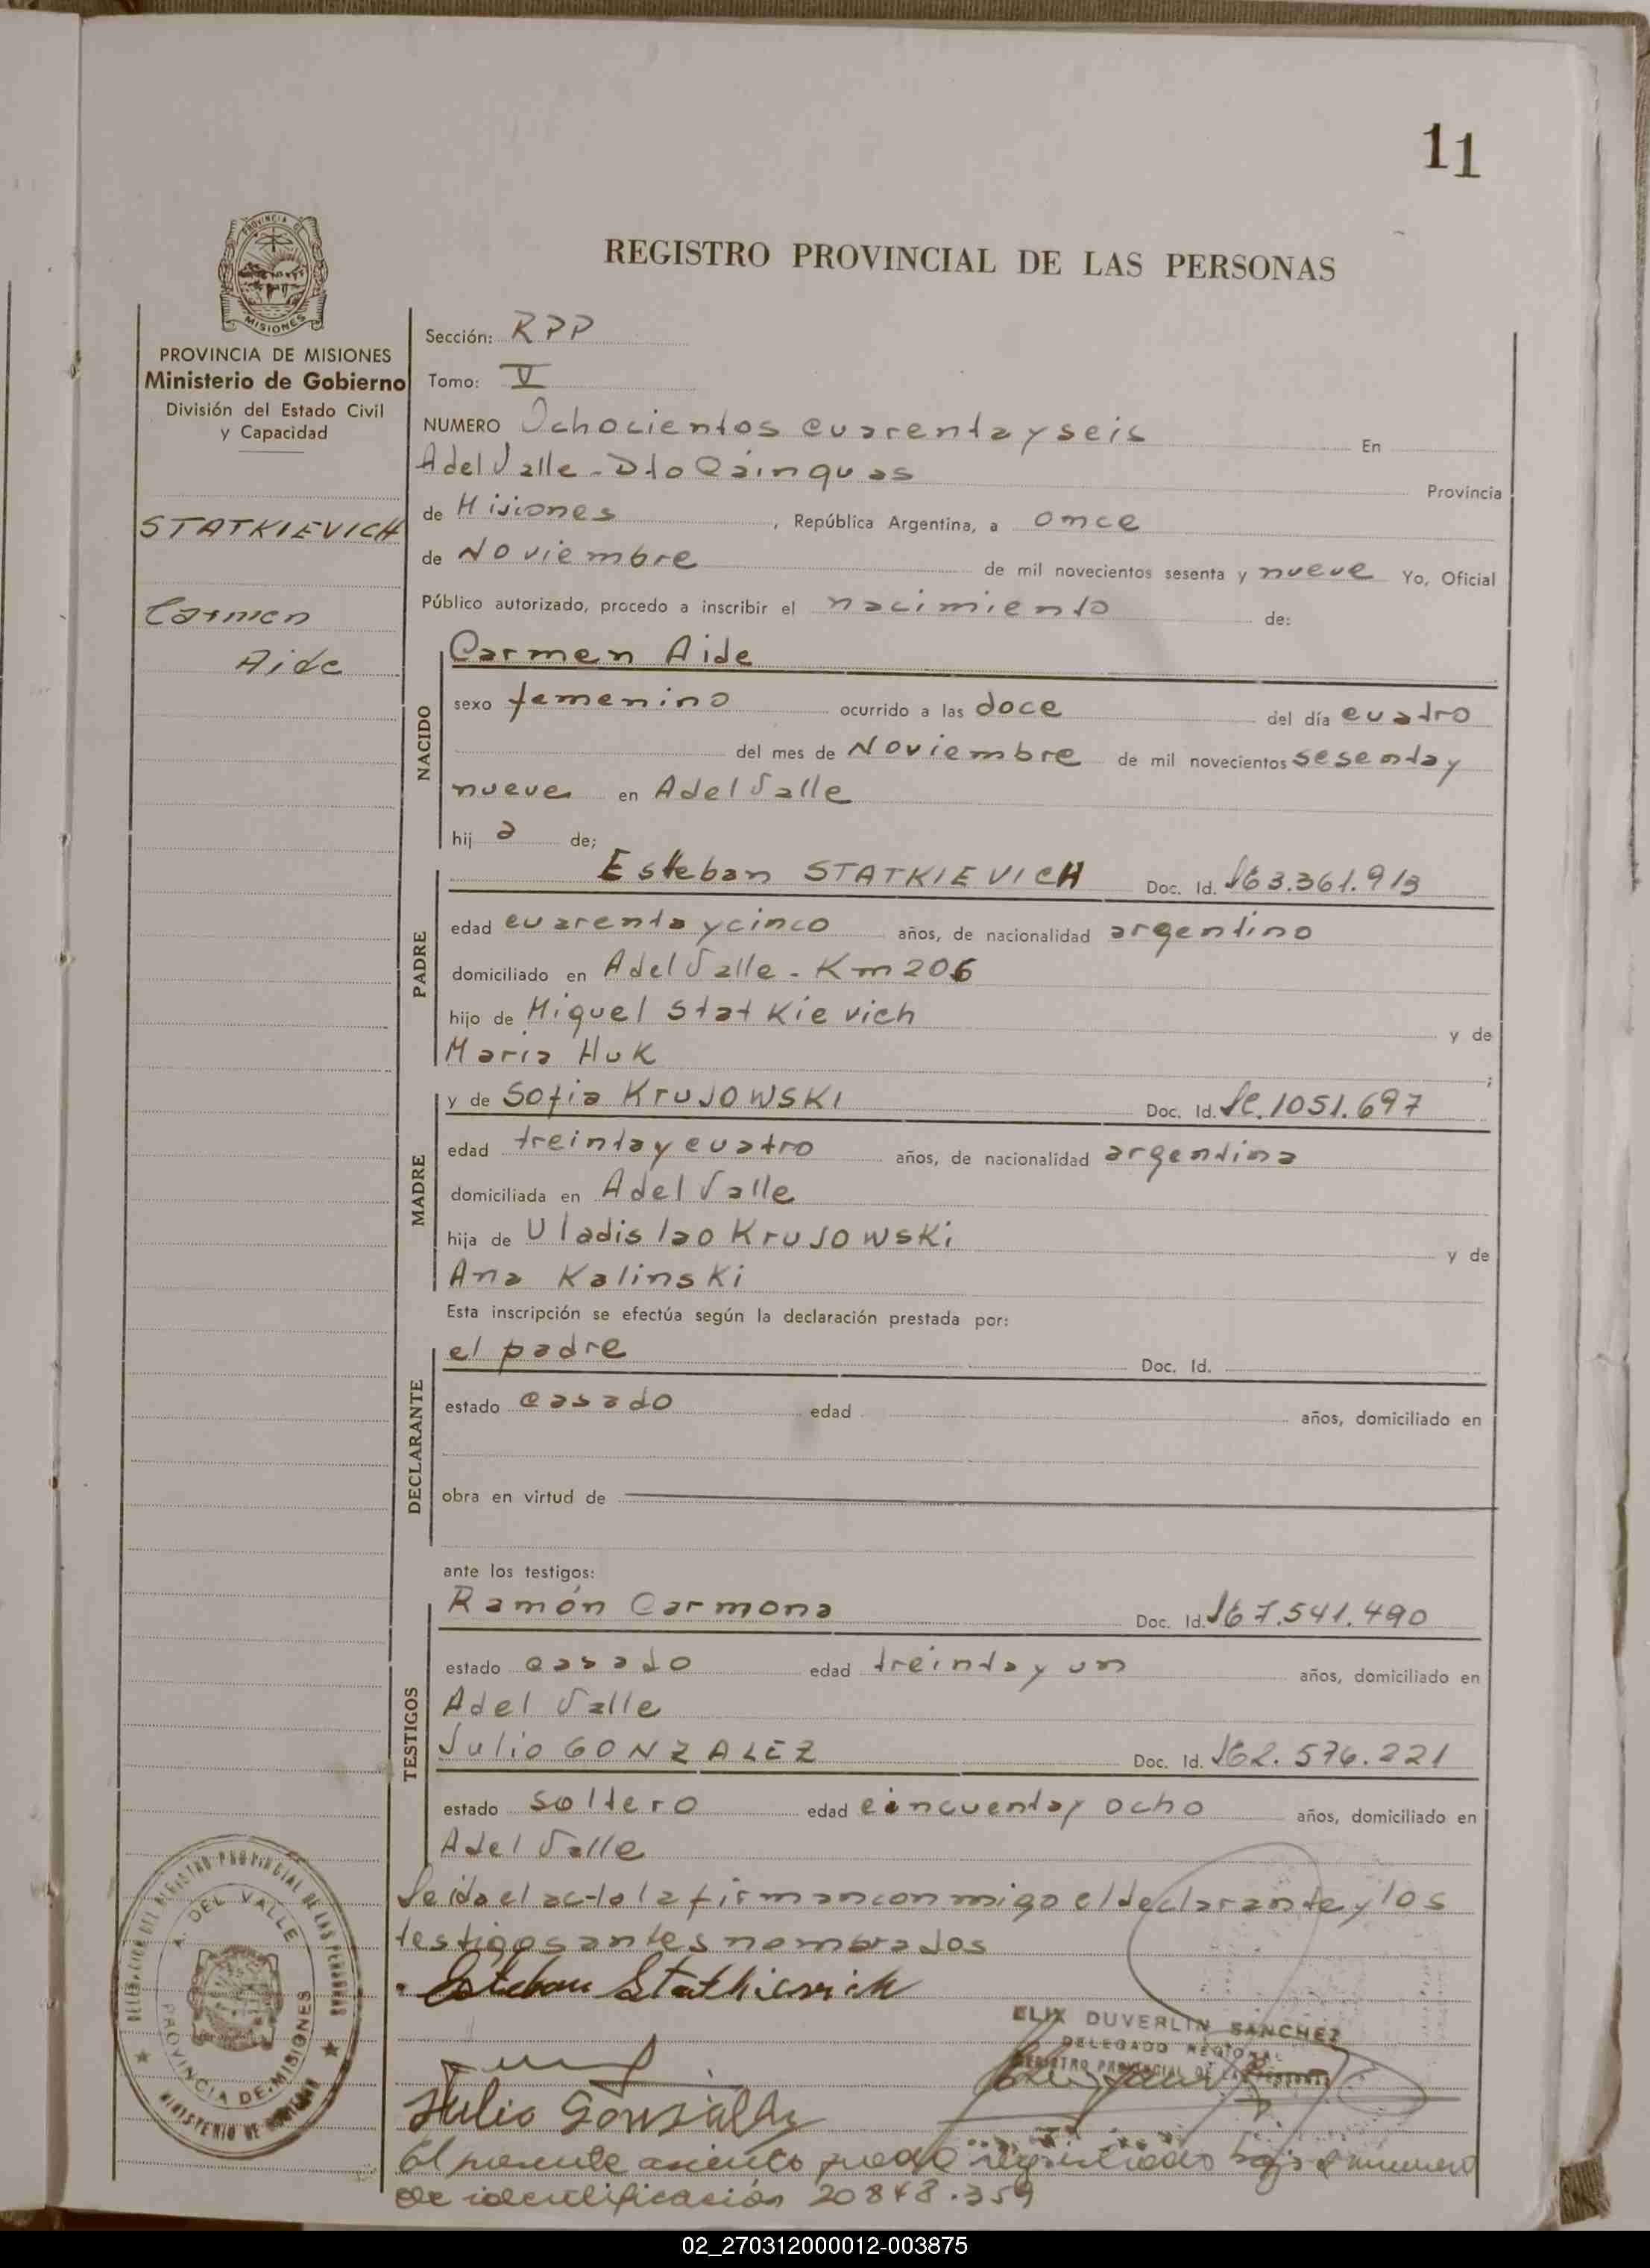 11
REGISTRO PROVINCIAL DE LAS PERSONAS
PROVINCIA DE MISIONES
Ministerio de Gobierno
División del Estado Civil
y Capacidad
STATKIEVICH
Carmen
Aide
Sección: RPP
Tomo: V
NUMERO Ochocientos cuarenta y seis En
A del Valle - Dto Cainguas Provincia
de Misiones, República Argentina, a once
de Noviembre de mil novecientos sesenta y nueve Yo, Oficial
Público autorizado, procedo a inscribir el nacimiento de:
NACIDO
Carmen Aide
sexo femenino ocurrido a las doce del día cuatro
del mes de Noviembre de mil novecientos sesenta y
nueve en A del Valle
hij a de;
PADRE
Esteban STATKIEVICH Doc. Id. 3.361.913
edad cuarenta y cinco años, de nacionalidad argentino
domiciliado en A del Valle - Km 206
hijo de Miguel Statkievich y de
Maria Huk ;
MADRE
y de Sofia KruJOWSKI Doc. Id. 1051.697
edad treinta y cuatro años, de nacionalidad argentina
domiciliada en A del Valle
hija de Uladislao KruJOWSKi y de
Ana Kalinski
Esta inscripción se efectúa según la declaración prestada por:
DECLARANTE
el padre Doc. Id.
estado casado edad años, domiciliado en
obra en virtud de
ante los testigos:
TESTIGOS
Ramón Carmona Doc. Id. 7.541.490
estado casado edad treinta y un años, domiciliado en
A del Valle
Julio GONZALEZ Doc. Id. 2.576.221
estado soltero edad cincuenta y ocho años, domiciliado en
A del Valle
Leida el acta la firman conmigo el declarante y los
testigos antes nombrados
Esteban Statkievich
ELIX DUVERLIN SANCHEZ
DELEGADO REGIONAL
REGISTRO PROVINCIAL DE LAS PERSONAS
Julio Gonzalez
El presente asiento quedó registrado bajo el numero
de identificación 20848.359
DELEGACION DEL REGISTRO PROVINCIAL DE LAS PERSONAS
A. DEL VALLE
PROVINCIA DE MISIONES
MINISTERIO DE GOBIERNO
02_270312000012-003875